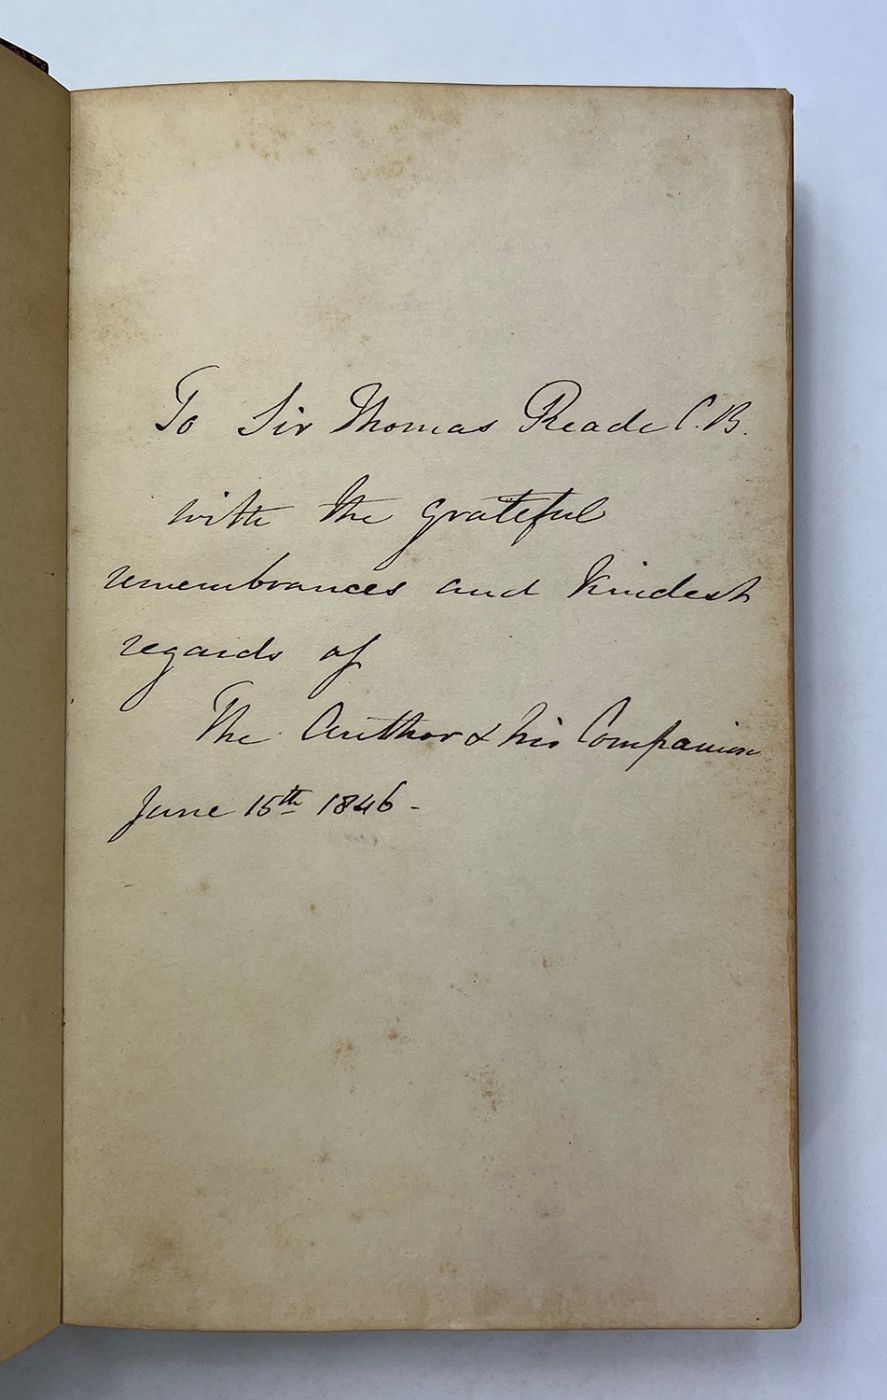 To Sir Thomas Reade C.B.
with the grateful
remembrances and kindest
regards of
The Author & his Companion
June 15th 1846 -